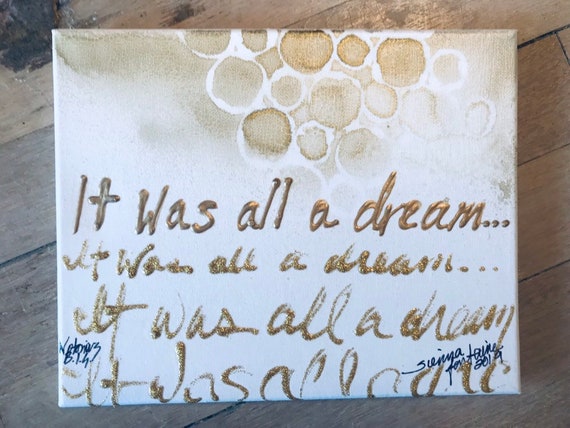 It was all a dream...
It was all a dream....
It was all a dream
It was all a
Sienna
Fontaine
2019